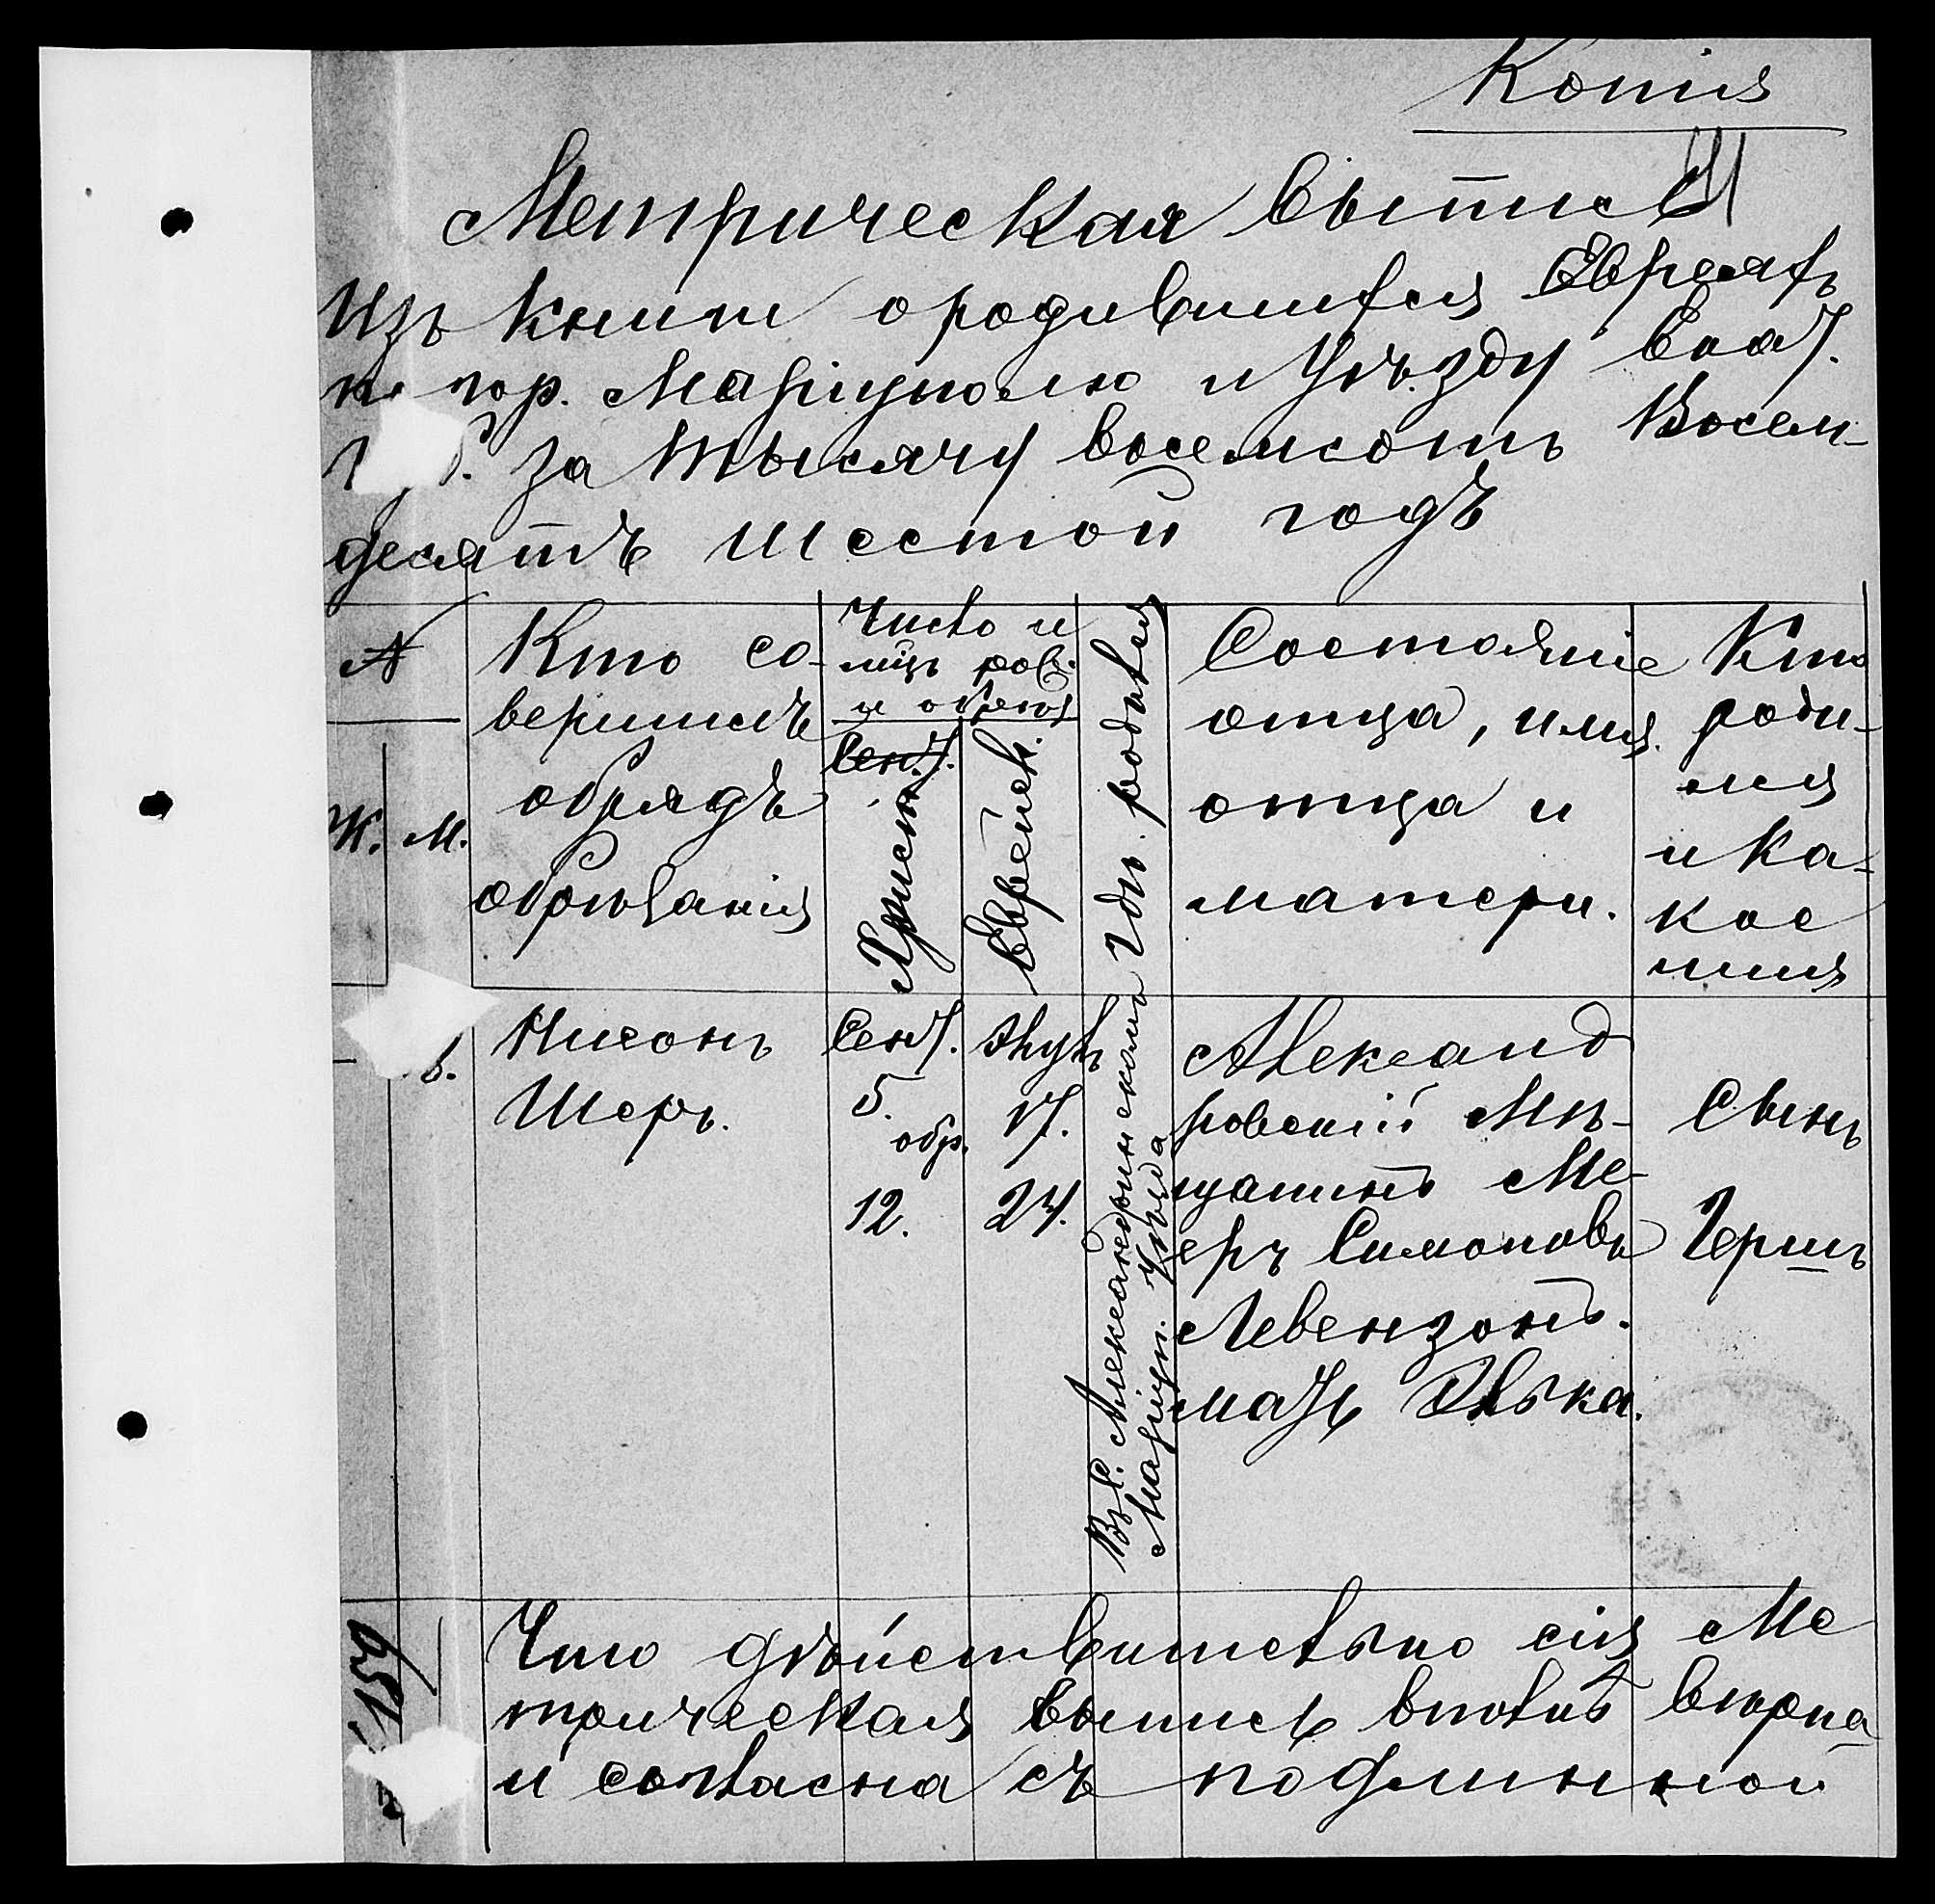 Копія
Метрическая Выпись
Изъ книги о родившихся Евреяхъ
по гор. Маріуполю и Уѣзду Екат.
за тысячу восемсотъ Восем-
десятъ шестой годъ
№
Ж. М.
Кто со-
вершилъ
обрядъ
обрѣзанія
Число и
мцъ рожд.
и обрѣз.
Сент.
Христ.
Еврейск.
Гдѣ родился
Состояніе
отца, имя
отца и
матери.
Кто
роди-
лся
и ка-
кое
имя
6.
Нисонъ
Шеръ.
Сент.
5.
обр.
12.
Элулъ
17.
24.
Въ с. Александринскомъ
Маріуп. Уѣзда
Александ
ровскій Мѣ-
щанинъ Ме-
еръ Симоновъ
Левензонъ.
мать Элька.
Сынъ
Гершъ
Что дѣйствительно сія Ме
трическая выпись вполнѣ вѣрна
и согласна съ подлинной